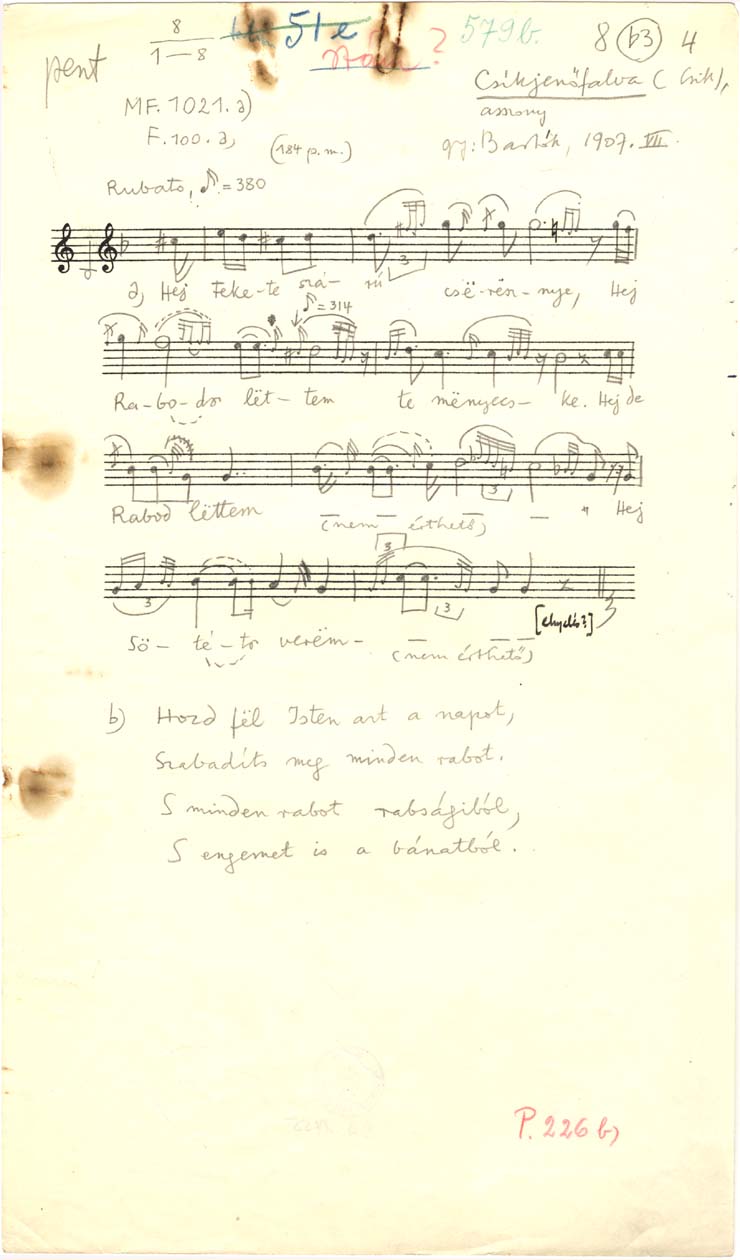 8
1—8
51e
?
579b.
8 (b3) 4
pent
Csíkjenőfalva (Csík),
asszony
MF. 1021. a)
F. 100. a,
(184 p. m.)
gy: Bartók, 1907. VII.
Rubato, ♪ = 380
a, Hej Feke-te szá- rú csë-rën-nye, Hej
♪ = 314
Ra-bo-dz lët-tem te mënyecs-ke. Hej de
Rabod lëttem (nem érthető) — " Hej
3
3
Sö- té-tz verëm- (nem érthető)
b) Hozd fël Isten azt a napot,
Szabadíts meg minden rabot.
S minden rabot rabságiból,
S engemet is a bánatból.
P. 226 b)